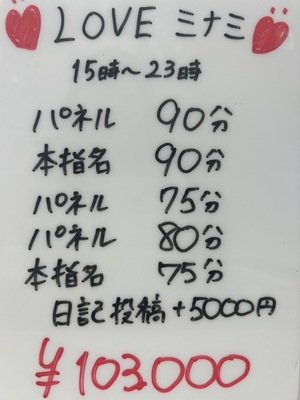 LOVE ミナミ
15時〜23時
パネル 90分
本指名 90分
パネル 75分
パネル 80分
本指名 75分
日記投稿 +5000円
¥103.000